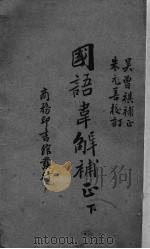 吴曾祺補正
朱元善校訂
國語韋解補正下
商務印書館藏版